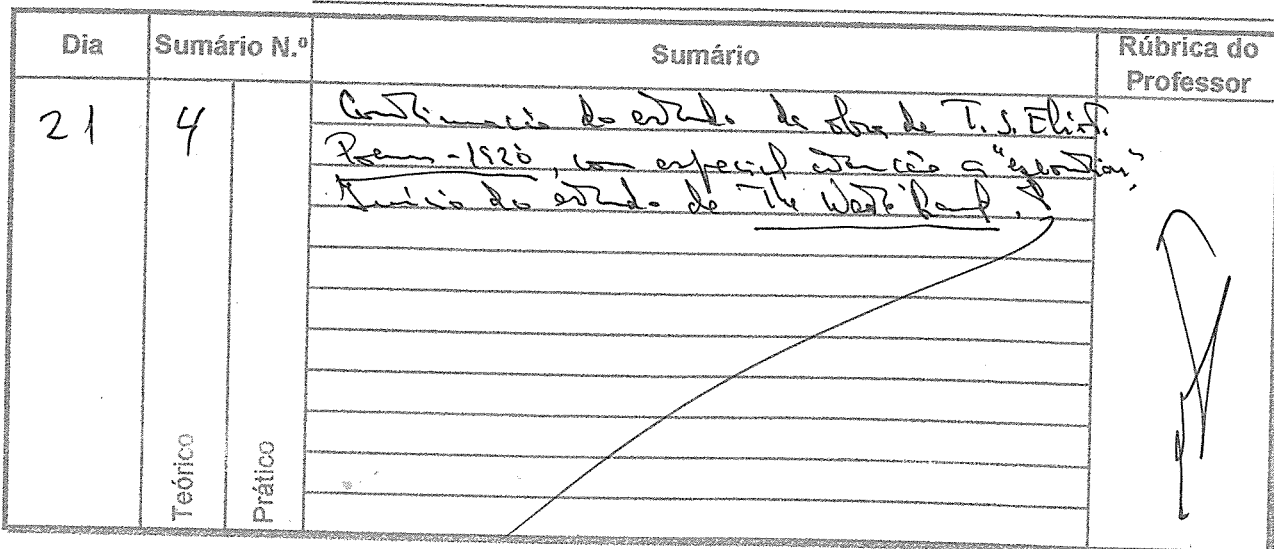 Dia
Sumário N.º
Sumário
Rúbrica do
Professor
21
4
Continuação do estudo da obra de T. S. Eliot.
Poems - 1920, com especial atenção a "gerontion".
Início do estudo de The Waste Land.
Teórico
Prático